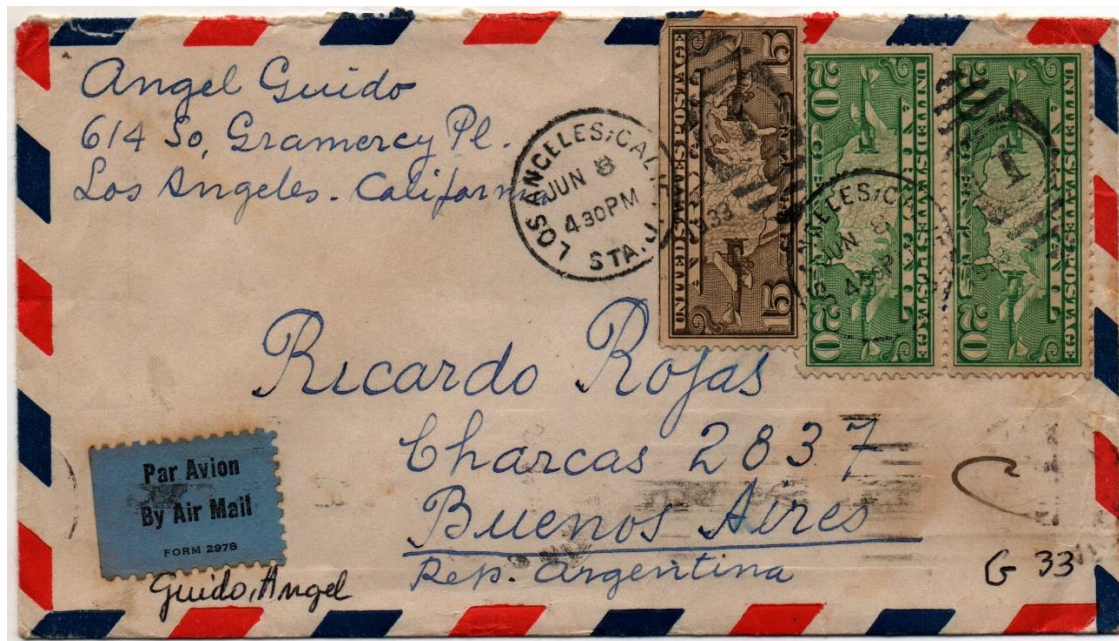 Angel Guido
614 So, Gramercy Pl.
Los Angeles. California
LOS ANGELES, CAL
JUN 8
4 30 PM
1933
STA. J.
UNITED STATES POSTAGE
AIR MAIL
15 CENTS 15
UNITED STATES POSTAGE
AIR MAIL
20 CENTS 20
UNITED STATES POSTAGE
AIR MAIL
20 CENTS 20
ANGELES, C
JUN 8
4 30 P
Ricardo Rojas
Charcas 2837
Buenos Aires
Rep. Argentina
Par Avion
By Air Mail
FORM 2978
Guido, Angel
G 33